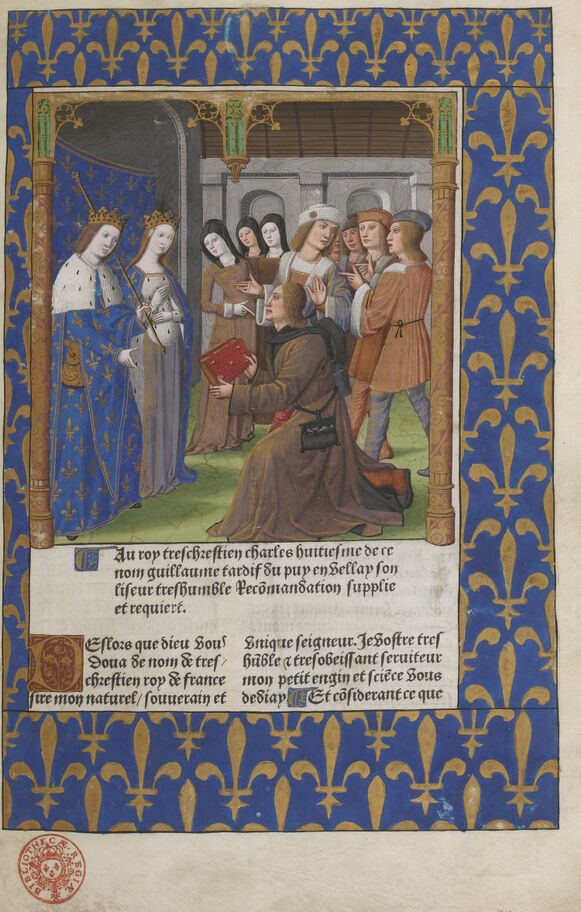 Au roy treschrestien charles huitiesme de ce
nom guillaume tardif du puy en vellay son
liseur treshumble Recōmandation supplie
et requiert.
Eslors que dieu vous
Doua de nom de tres/
chrestien roy de france
sire mon naturel/ souverain et
Unique seigneur. Je vostre tres
hūble ⁊ tresobeissant serviteur
mon petit engin et sciēce vous
dediay Et cōsiderant ce que
BIBLIOTHECÆ REGIÆ